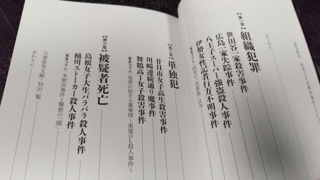 第一章
組織犯罪
世田谷一家殺害事件
広島一家失踪事件
八王子スーパー強盗殺人事件
伊勢女性記者行方不明事件
第二章
単独犯
廿日市女子高生殺害事件
川崎連続通り魔事件
舞鶴高1女子殺害事件
東電OL殺人事件
第三章
被疑者死亡
島根女子大生バラバラ殺人事件
桶川ストーカー殺人事件
おわりに